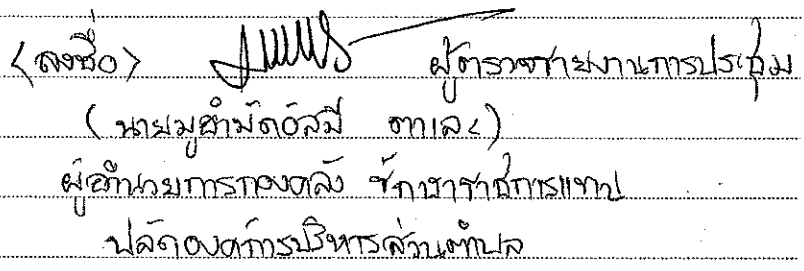 (ลงชื่อ) ผู้ตรวจรายงานการประชุม
(นายมูฮำมัดอัสมี ตาเละ)
ผู้อำนวยการกองคลัง รักษาราชการแทน
ปลัดองค์การบริหารส่วนตำบล